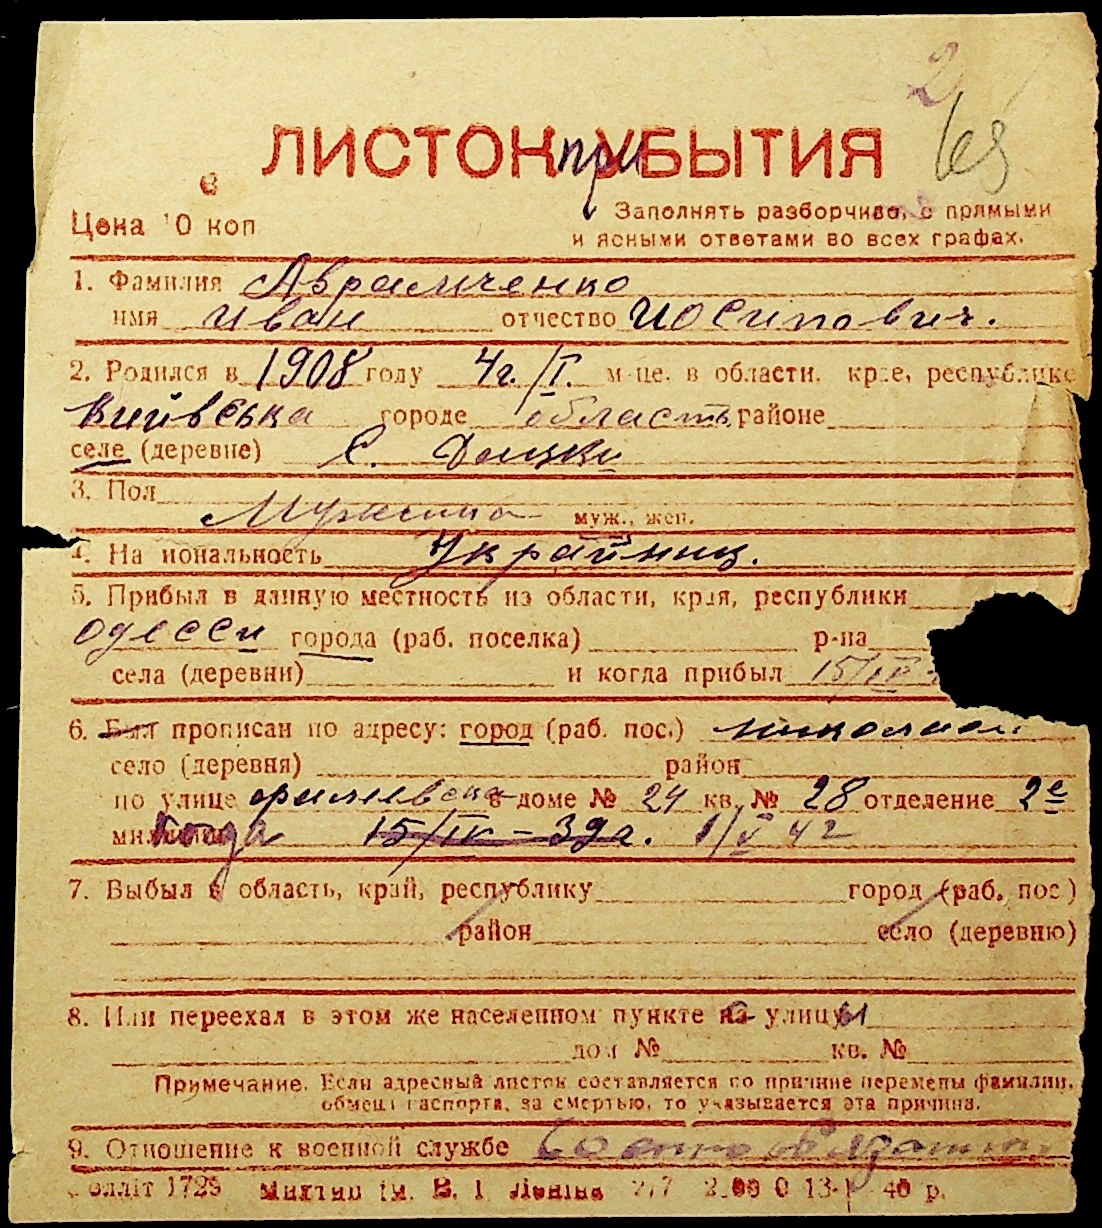 2
68
ЛИСТОК при УБЫТИЯ
Цена 0 коп
Заполнять разборчиво, с прямыми
и ясными ответами во всех графах.
1. Фамилия Авраменко
имя Иван отчество Иосипович.
2. Родился в 1908 году 4г./I. м-це, в области, крае, республике
Київська городе область районе
селе (деревне) С.
3. Пол Мужчина муж., жен.
4. На иональность Украйниц.
5. Прибыл в данную местность из области, края, республики
Одесси города (раб. поселка) р-на
села (деревни) и когда прибыл 15/IV
6. Был прописан по адресу: город (раб. пос.) Николаев
село (деревня) район
по улице в доме № 24 кв. № 28 отделение 2е
милиции Когда 15/IV – 39г. 1/V 42
7. Выбыл в область, край, республику город (раб. пос)
район село (деревню)
8. Или переехал в этом же населенном пункте из улицы
дом № кв. №
Примечание. Если адресный листок составляется по причине перемены фамилии,
обмена паспорта, за смертью, то указывается эта причина.
9. Отношение к военной службе
олліт 1729 Миктип ім. В. І Леніна 277 2.00 0 13- 40 р.